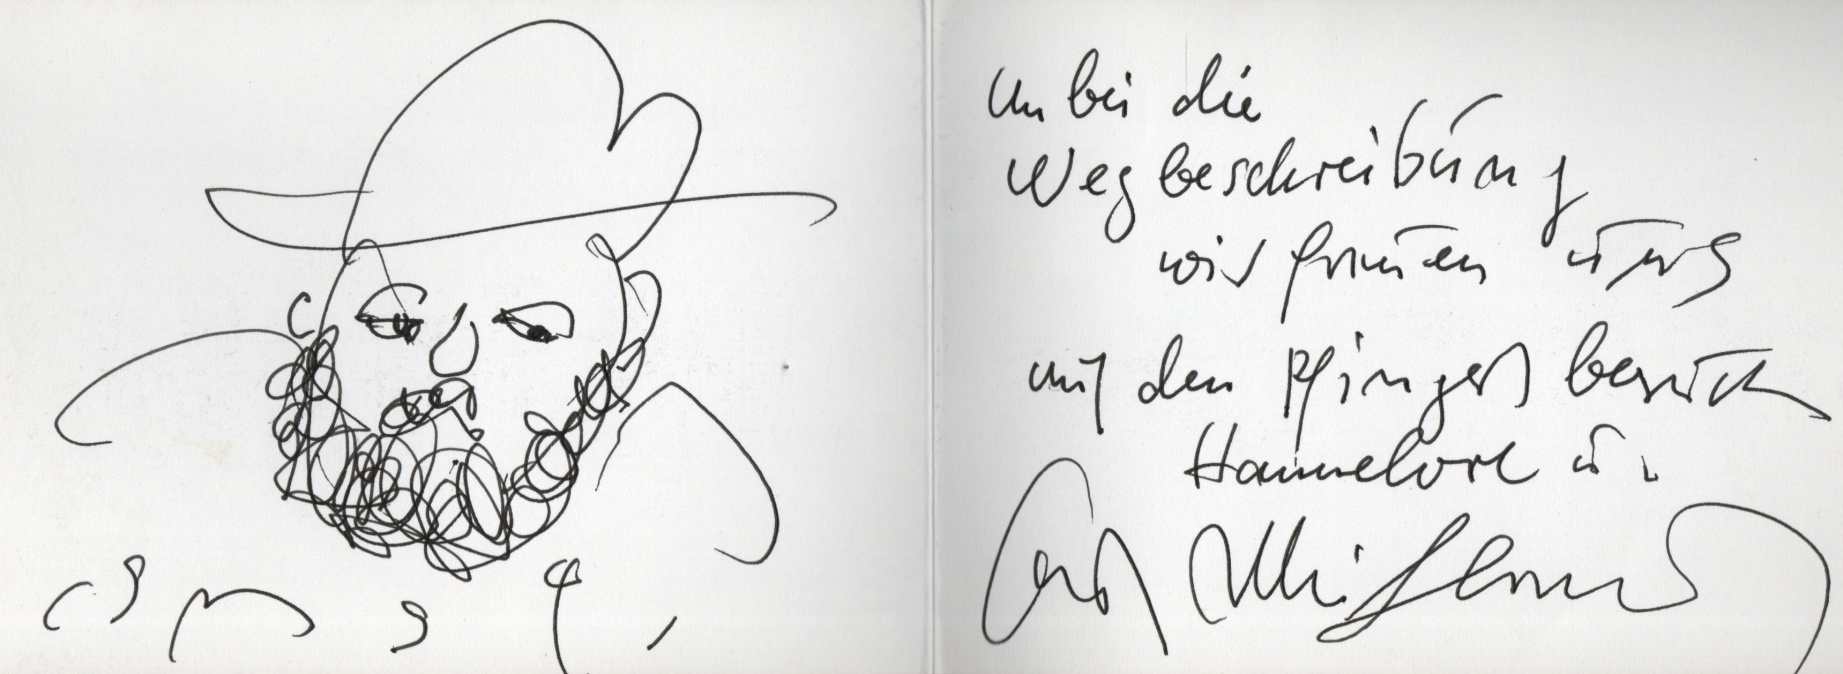 Anbei die
Wegbeschreibung
wir freuen uns
auf den Pfingstbesuch
Hannelore u.